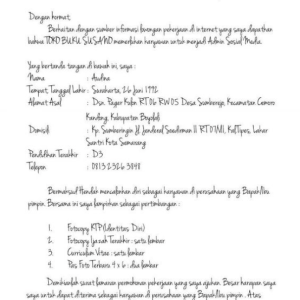 Dengan hormat,
Berkaitan dengan sumber informasi lowongan pekerjaan di internet yang saya dapatkan
bahwa TOKO BUKU SUSANO memerlukan karyawan untuk menjadi Admin Sosial Media.
Yang bertanda tangan di bawah ini, saya :
Nama :
Tempat, Tanggal Lahir : Surakarta, 26 Juni 1992
Alamat Asal : Dsn. Pager Kulon RT 06 RW 05 Desa Sumberejo, Kecamatan
Kabupaten Boyolali
Domisili : Kp. Jl. Jenderal Soedirman
Santri Kota Semarang
Pendidikan Terakhir : D3
Telepon : 0813 2326 3848
Bermaksud Hendak mencalonkan diri sebagai karyawan di perusahaan yang Bapak/Ibu
pimpin. Bersama ini saya lampirkan sebagai pertimbangan :
1. Fotocopy KTP (Identitas Diri)
2. Fotocopy Ijazah Terakhir : satu lembar
3. Curriculum Vitae : satu lembar
4. Pas Foto Terbaru 4 x 6 : dua lembar
Demikianlah surat lamaran permohonan pekerjaan yang saya ajukan. Besar harapan saya
saya untuk dapat diterima sebagai karyawan di perusahaan yang Bapak/Ibu pimpin . Atas